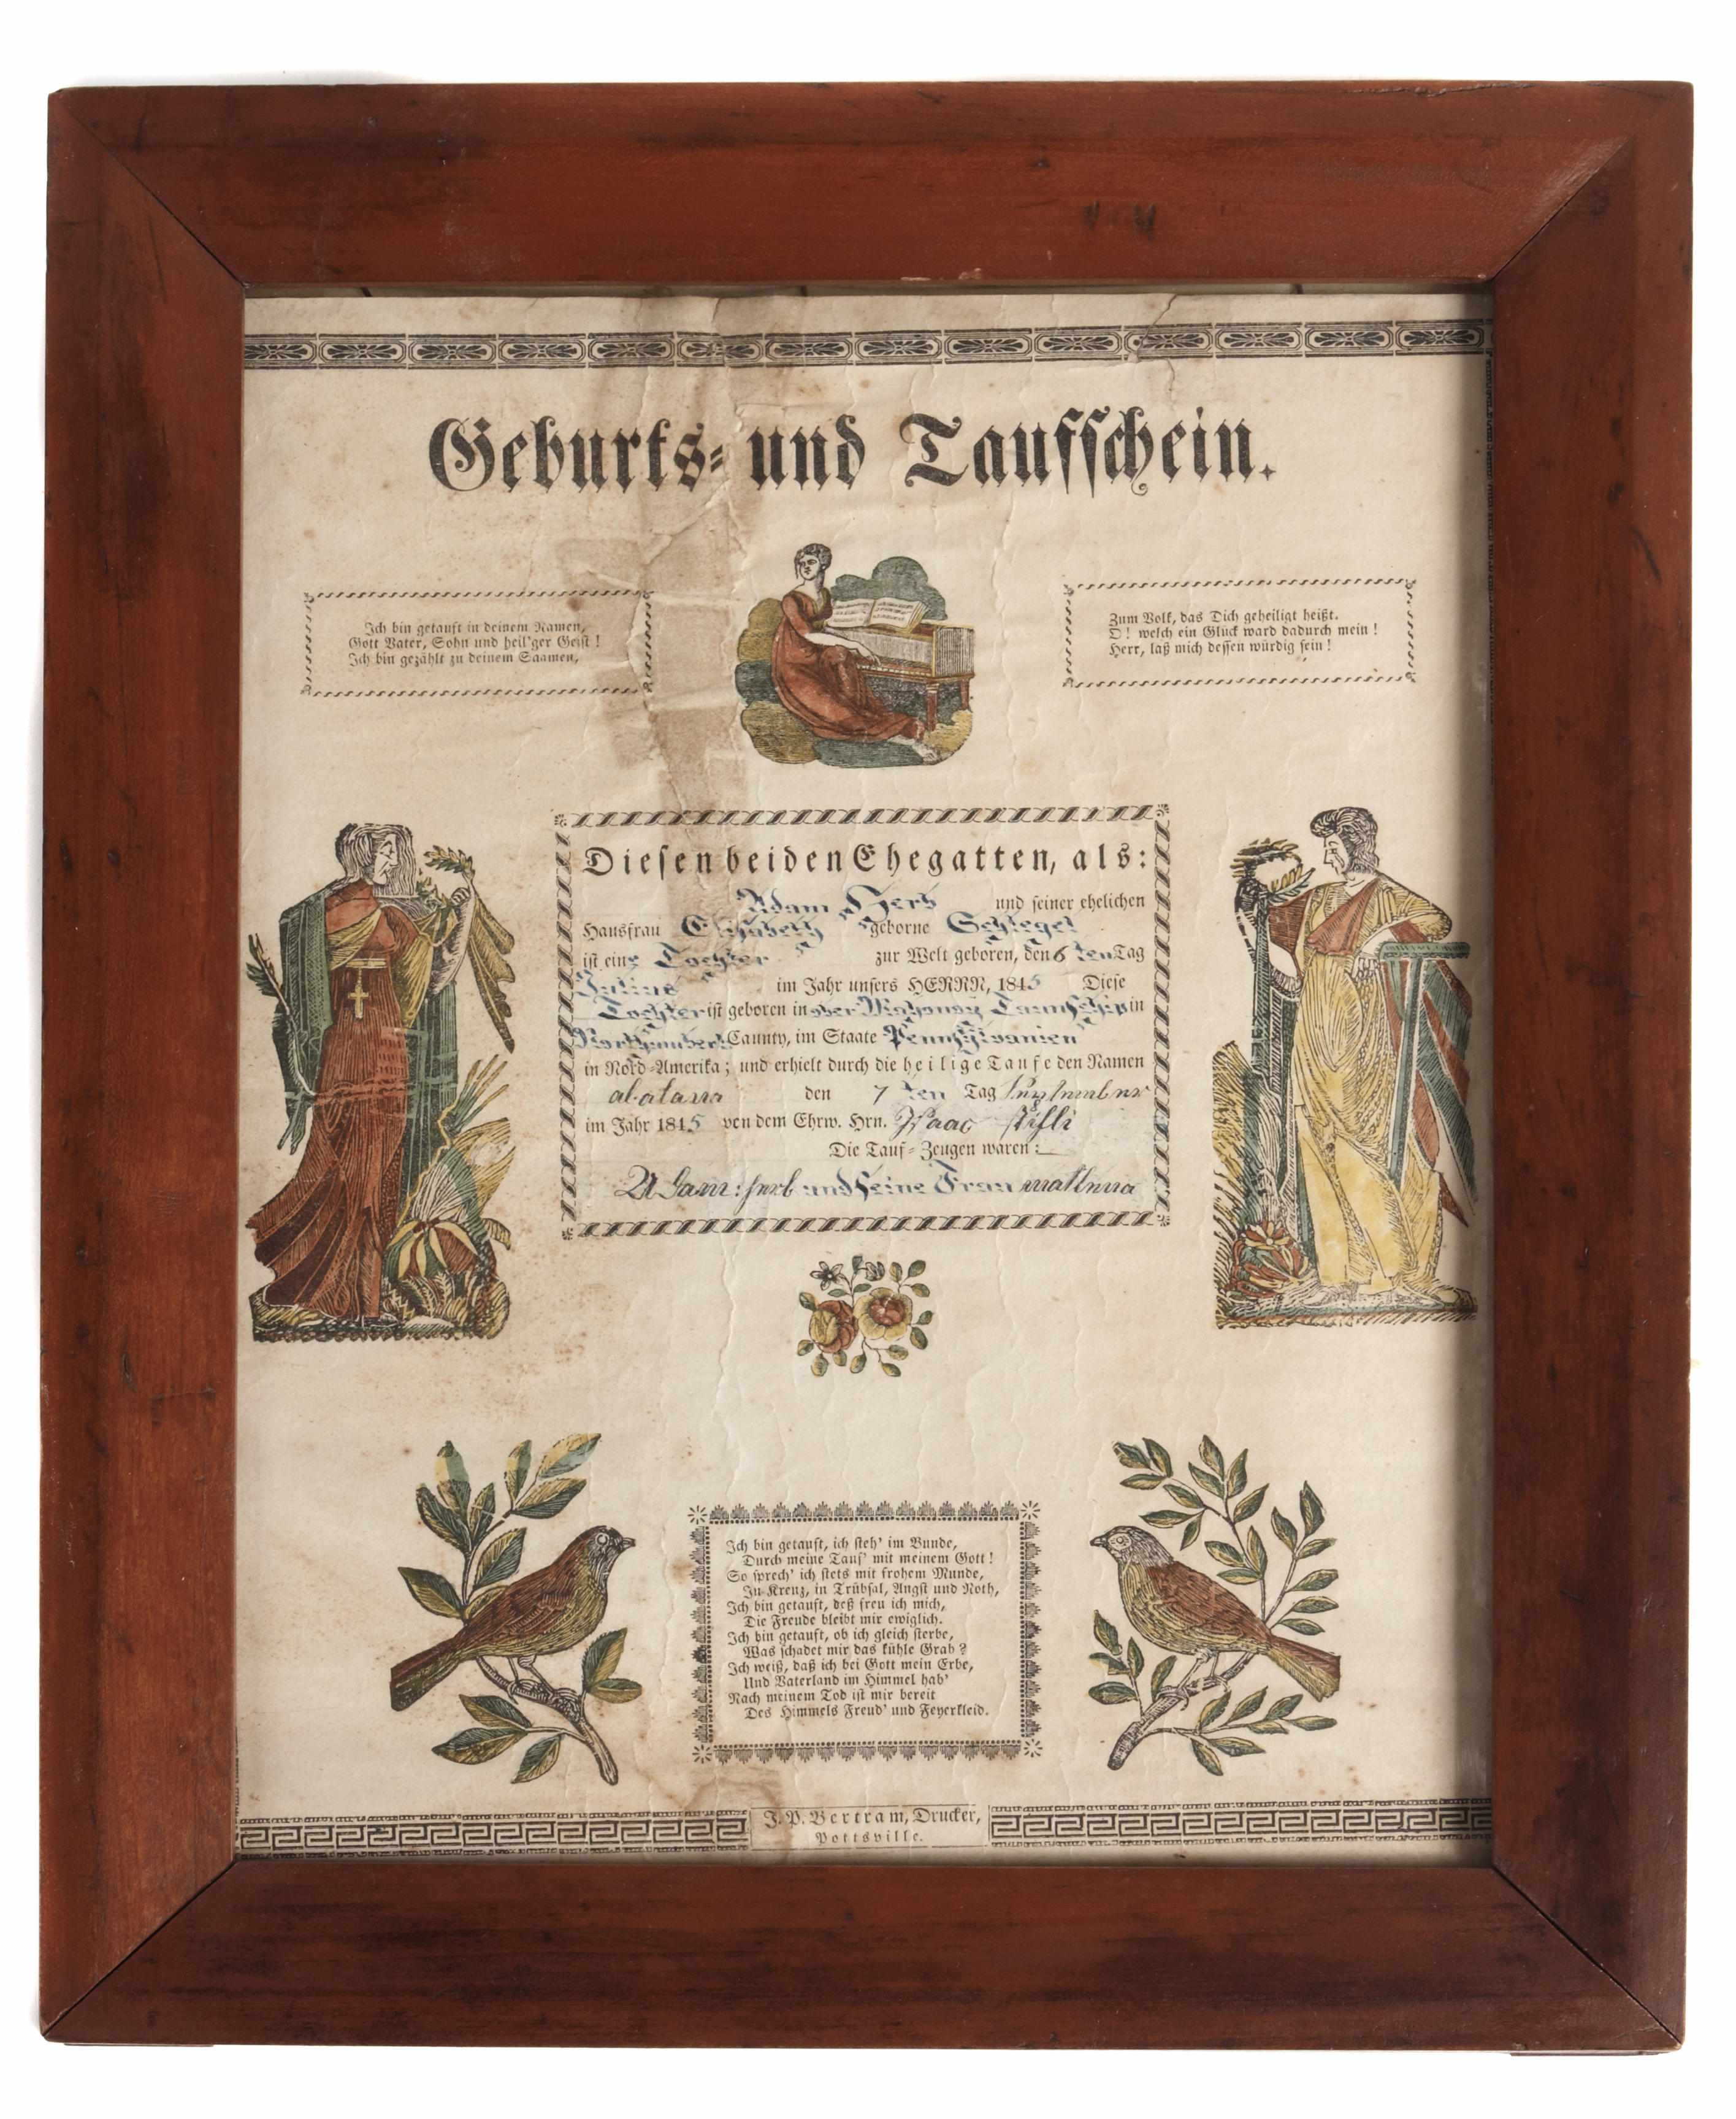 Geburts- und Taufschein.
Ich bin getauft in deinem Namen,
Gott Vater, Sohn und heil'ger Geist!
Ich bin gezählt zu deinem Saamen,
Zum Volk, das Dich geheiligt heißt.
O! welch ein Glück ward dadurch mein!
Herr, laß mich dessen würdig sein!
Diesen beiden Ehegatten, als:
Adam Herb und seiner ehelichen
Hausfrau Elisabeth geborne Schlegel
ist eine Tochter zur Welt geboren, den 6 ten Tag
Julius im Jahr unsers HERRN, 1845 Diese
Tochter ist geboren in ober Mahonoy Taunschip in
Caunty, im Staate Pennsylvanien
in Nord-Amerika; und erhielt durch die heilige Taufe den Namen
den 7 ten Tag September
im Jahr 1845 von dem Ehrw. Hrn. Isaac
Die Tauf-Zeugen waren:
Adam: Herb und seine Frau
Ich bin getauft, ich steh' im Bunde,
Durch meine Tauf' mit meinem Gott!
So sprech' ich stets mit frohem Munde,
In Kreuz, in Trübsal, Angst und Noth,
Ich bin getauft, deß freu ich mich,
Die Freude bleibt mir ewiglich.
Ich bin getauft, ob ich gleich sterbe,
Was schadet mir das kühle Grab?
Ich weiß, daß ich bei Gott mein Erbe,
Und Vaterland im Himmel hab'
Nach meinem Tod ist mir bereit
Des Himmels Freud' und Feyerkleid.
J. P. Bertram, Drucker,
Pottsville.